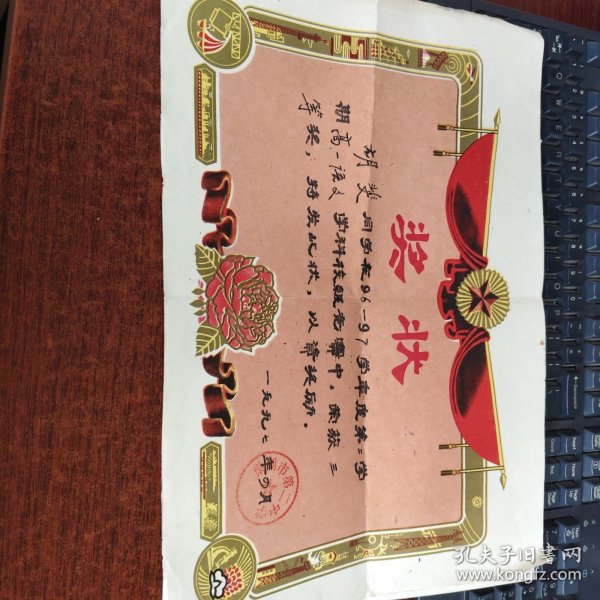 奖状
胡斐 同学在96-97学年度第二学
期高一语文学科校级竞赛中,荣获三
等奖,特发此状,以资奖励。
一九九七年四月
市第一中
孔夫子旧书网
www.kongfz.com